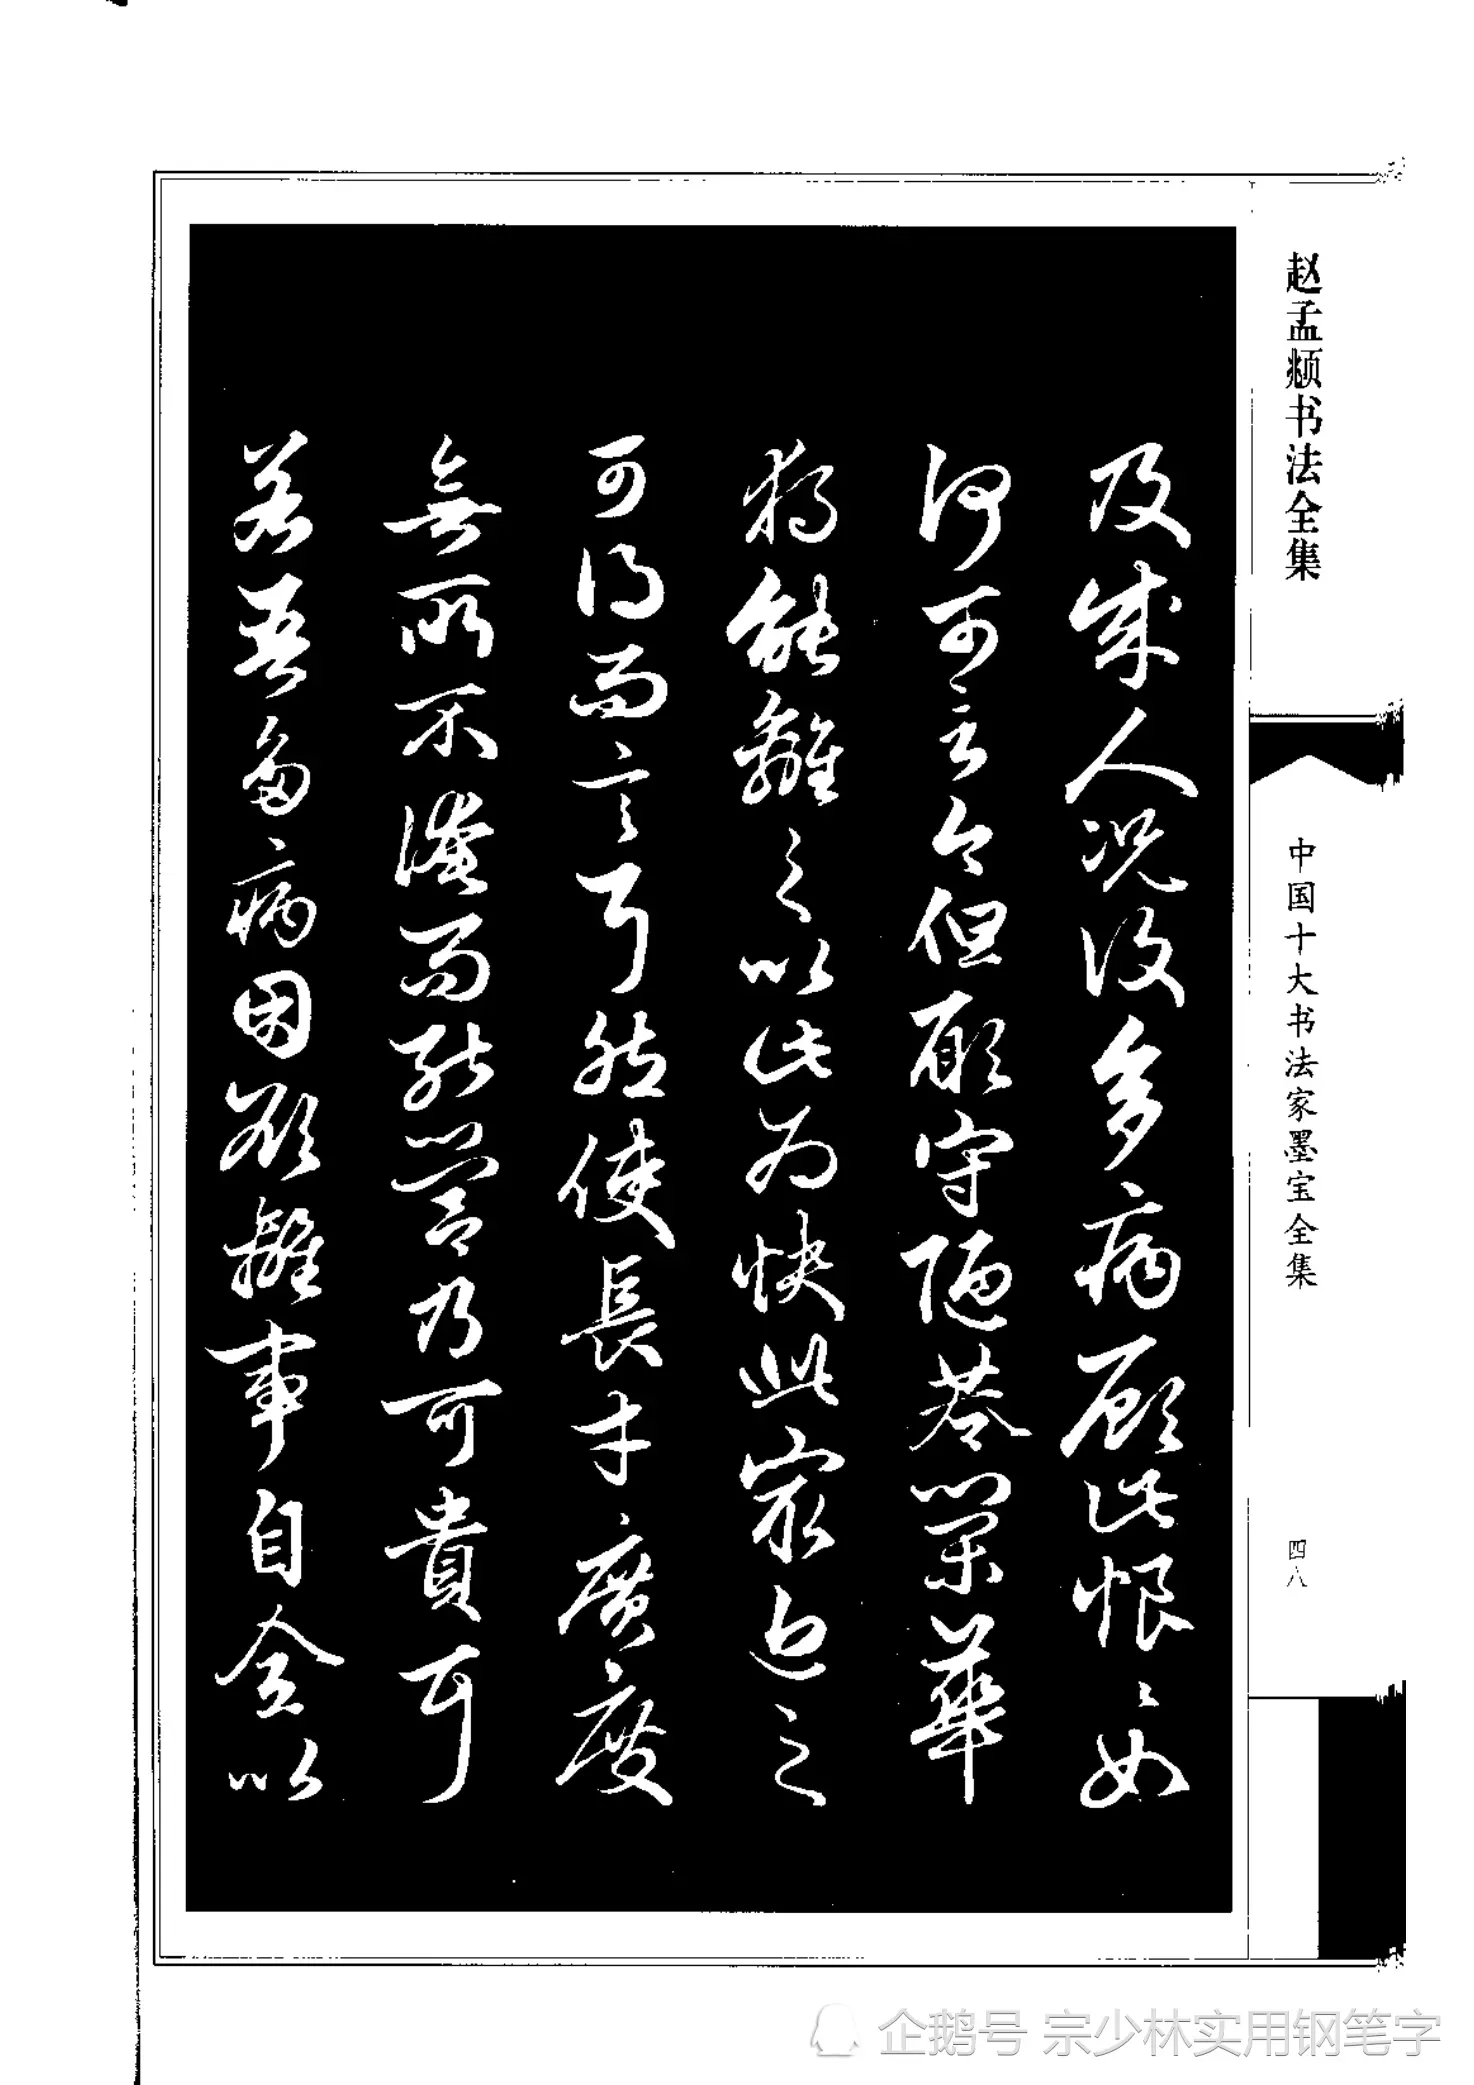 赵孟頫书法全集
中国十大书法家墨宝全集
四八
及成人况復多病顧此恨恨如
何可言今但願守陋巷
獨能離之以此為快此最近之
可得而言耳然使長才廣度
無所不淹而能不營乃可貴耳
若吾多病困欲離事自全以
企鹅号 宗少林实用钢笔字